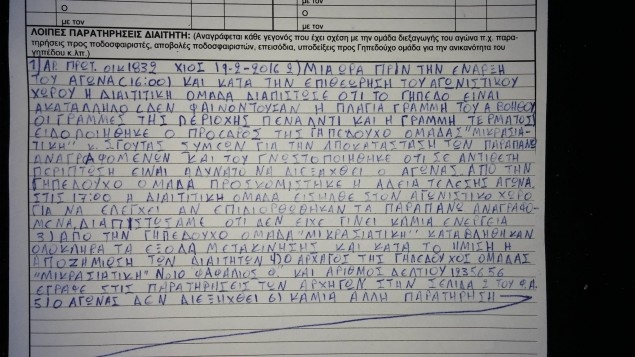 με τον
Ο
με τον
Ο
με τον
ΛΟΙΠΕΣ ΠΑΡΑΤΗΡΗΣΕΙΣ ΔΙΑΙΤΗΤΗ: (Αναγράφεται κάθε γεγονός που έχει σχέση με την ομάδα διεξαγωγής του αγώνα π.χ. παρα-
τηρήσεις προς ποδοσφαιριστές, αποβολές ποδοσφαιριστών, επεισόδια, υποδείξεις προς Γηπεδούχο ομάδα για την ανικανότητα του
γηπέδου κ.λπ.)
1) ΑΡ. ΠΡΩΤ. οικ 1832 ΧΙΟΣ 19-2-2016 2) ΜΙΑ ΩΡΑ ΠΡΙΝ ΤΗΝ ΕΝΑΡΞΗ
ΤΟΥ ΑΓΩΝΑ (16:00) ΚΑΙ ΚΑΤΑ ΤΗΝ ΕΠΙΘΕΩΡΗΣΗ ΤΟΥ ΑΓΩΝΙΣΤΙΚΟΥ
ΧΩΡΟΥ Η ΔΙΑΙΤΗΤΙΚΗ ΟΜΑΔΑ ΔΙΑΠΙΣΤΩΣΕ ΟΤΙ ΤΟ ΓΗΠΕΔΟ ΕΙΝΑΙ
ΑΚΑΤΑΛΛΗΛΟ (ΔΕΝ ΦΑΙΝΟΝΤΟΥΣΑΝ Η ΠΛΑΓΙΑ ΓΡΑΜΜΗ ΤΟΥ Α ΒΟΗΘΟΥ
ΟΙ ΓΡΑΜΜΕΣ ΤΗΣ ΠΕΡΙΟΧΗΣ ΠΕΝΑΛΤΙ ΚΑΙ Η ΓΡΑΜΜΗ ΤΕΡΜΑΤΟΣ)
ΕΙΔΟΠΟΙΗΘΗΚΕ Ο ΠΡΟΕΔΡΟΣ ΤΗΣ ΓΗΠΕΔΟΥΧΟ ΟΜΑΔΑΣ "ΜΙΚΡΑΣΙΑ-
ΤΙΚΗ" κ. ΣΓΟΥΤΑΣ ΣΥΜΕΩΝ ΓΙΑ ΤΗΝ ΑΠΟΚΑΤΑΣΤΑΣΗ ΤΩΝ ΠΑΡΑΠΑΝΩ
ΑΝΑΓΡΑΦΟΜΕΝΩΝ ΚΑΙ ΤΟΥ ΓΝΩΣΤΟΠΟΙΗΘΗΚΕ ΟΤΙ ΣΕ ΑΝΤΙΘΕΤΗ
ΠΕΡΙΠΤΩΣΗ ΕΙΝΑΙ ΑΔΥΝΑΤΟ ΝΑ ΔΙΕΞΑΧΘΕΙ Ο ΑΓΩΝΑΣ. ΑΠΟ ΤΗΝ
ΓΗΠΕΔΟΥΧΟ ΟΜΑΔΑ ΠΡΟΣΚΟΜΙΣΤΗΚΕ Η ΑΔΕΙΑ ΤΕΛΕΣΗΣ ΑΓΩΝΑ.
ΣΤΙΣ 17:00 Η ΔΙΑΙΤΗΤΙΚΗ ΟΜΑΔΑ ΕΙΣΗΛΘΕ ΣΤΟΝ ΑΓΩΝΙΣΤΙΚΟ ΧΩΡΟ
ΓΙΑ ΝΑ ΕΛΕΓΧΕΙ ΑΝ ΕΠΙΔΙΟΡΘΩΘΗΚΑΝ ΤΑ ΠΑΡΑΠΑΝΩ ΑΝΑΓΡΑΦΟ-
ΜΕΝΑ. ΔΙΑΠΙΣΤΩΣΑΜΕ ΟΤΙ ΔΕΝ ΕΙΧΕ ΓΙΝΕΙ ΚΑΜΙΑ ΕΝΕΡΓΕΙΑ
3) ΑΠΟ ΤΗΝ ΓΗΠΕΔΟΥΧΟ ΟΜΑΔΑ "ΜΙΚΡΑΣΙΑΤΙΚΗ" ΚΑΤΑΒΛΗΘΗΚΑΝ
ΟΛΟΚΛΗΡΑ ΤΑ ΕΞΟΔΑ ΜΕΤΑΚΙΝΗΣΗΣ ΚΑΙ ΚΑΤΑ ΤΟ ΗΜΙΣΗ Η
ΑΠΟΖΗΜΙΩΣΗ ΤΩΝ ΔΙΑΙΤΗΤΩΝ 4) Ο ΑΡΧΗΓΟΣ ΤΗΣ ΓΗΠΕΔΟΥΧΟΣ ΟΜΑΔΑΣ
"ΜΙΚΡΑΣΙΑΤΙΚΗ" Νο 10 Θ. ΚΑΙ ΑΡΙΘΜΟΣ ΔΕΛΤΙΟΥ 1235656
ΕΓΡΑΨΕ ΣΤΙΣ ΠΑΡΑΤΗΡΗΣΕΙΣ ΤΩΝ ΑΡΧΗΓΩΝ ΣΤΗΝ ΣΕΛΙΔΑ 2 ΤΟΥ Φ.Α.
5) Ο ΑΓΩΝΑΣ ΔΕΝ ΔΙΕΞΗΧΘΕΙ 6) ΚΑΜΙΑ ΑΛΛΗ ΠΑΡΑΤΗΡΗΣΗ